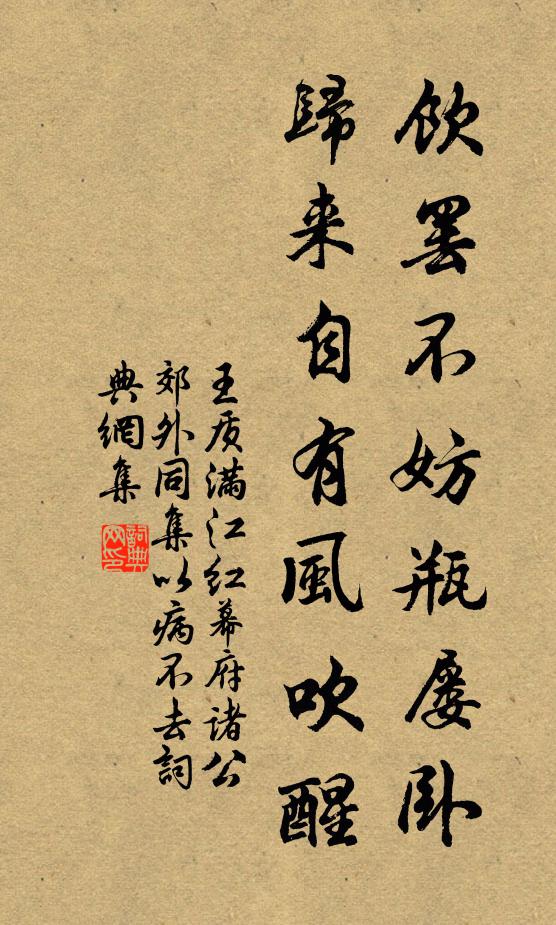 飲罷不妨瓶屡卧
歸来自有風吹醒
王质滿江紅幕府諸公
郊外同集以病不去詞
典網集
詞典网印